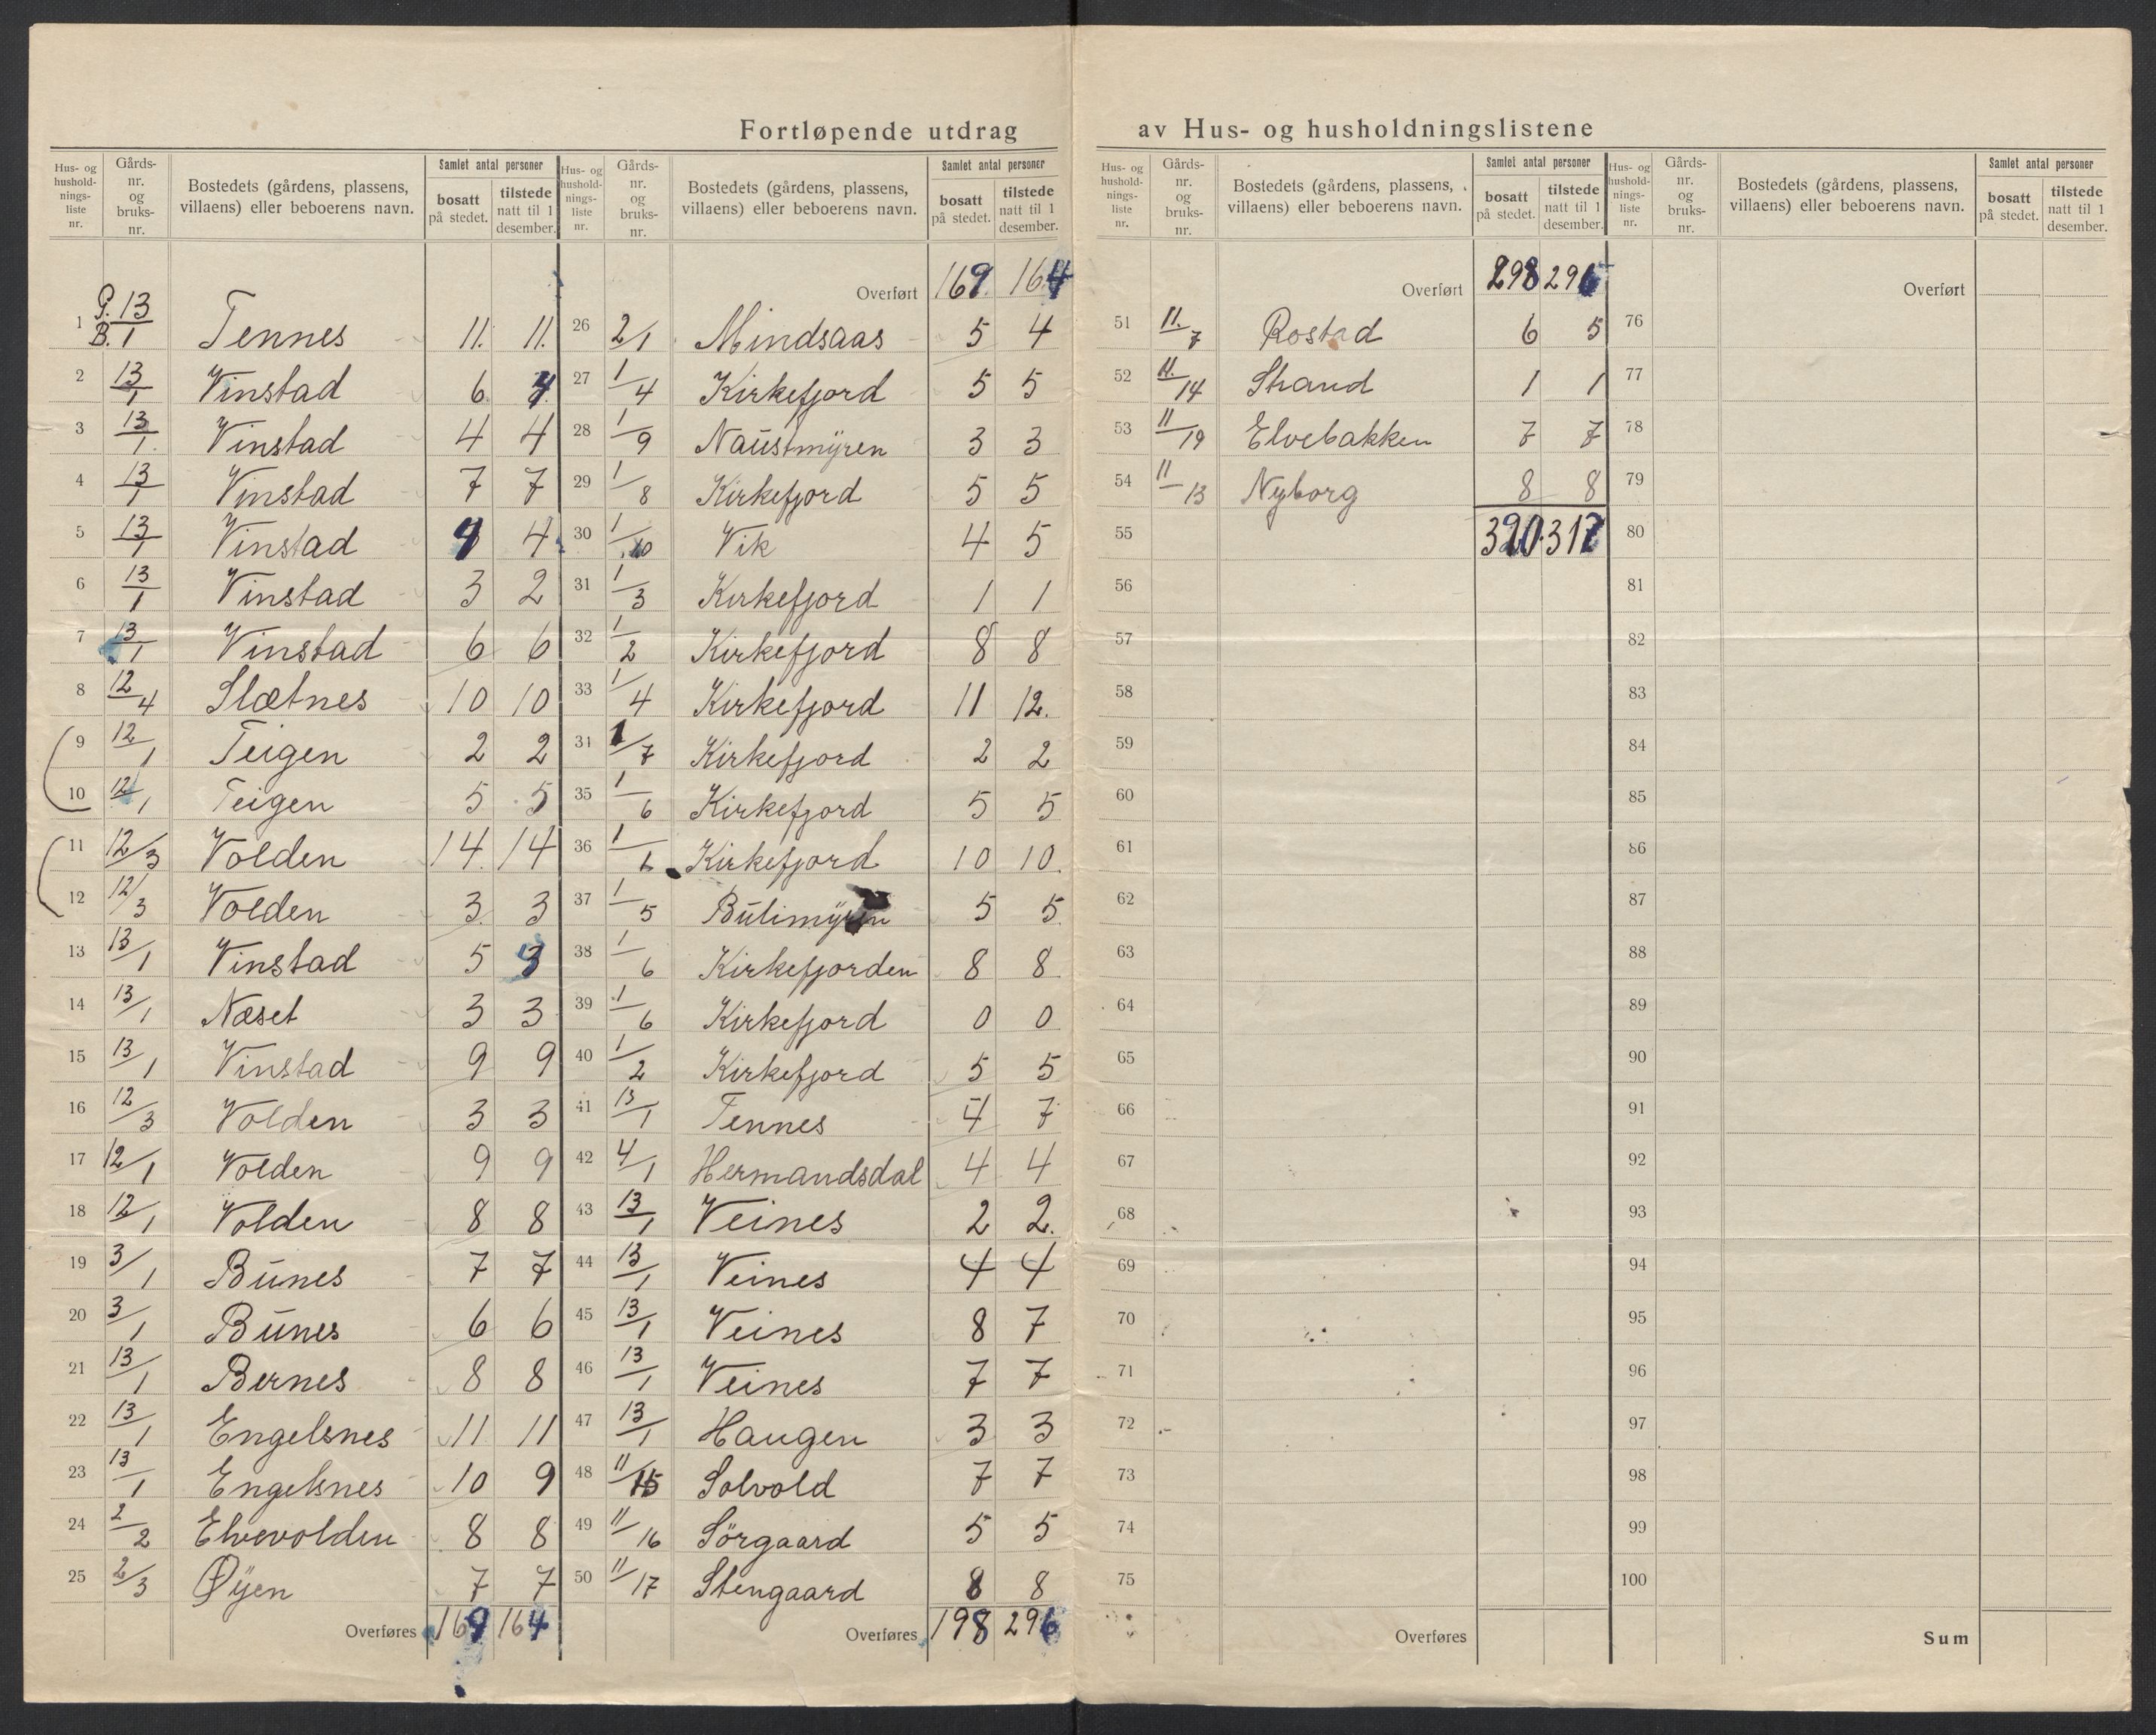 Fortløpende utdrag av Hus- og husholdningslistene
Hus- og hushold-nings-liste nr. Gårds-nr. og bruks-nr. Bostedets (gårdens, plassens, villaens) eller beboerens navn. Samlet antal personer bosatt på stedet. tilstede natt til 1 desember.
1 G. 13 B. 1 Tennes 11. 11.
2 13/1 Vinstad 6 4
3 13/1 Vinstad 4 4
4 13/1 Vinstad 7 7
5 13/1 Vinstad 4 4
6 13/1 Vinstad 3 2
7 13/1 Vinstad 6 6
8 12/4 Slætnes 10 10
9 12/1 Teigen 2 2
10 12/1 Teigen 5 5
11 12/3 Volden 14 14
12 12/3 Volden 3 3
13 13/1 Vinstad 5 3
14 13/1 Næset 3 3
15 13/1 Vinstad 9 9
16 12/3 Volden 3 3
17 12/1 Volden 9 9
18 12/1 Volden 8 8
19 3/1 Bunes 7 7
20 3/1 Bunes 6 6
21 13/1 Bernes 8 8
22 13/1 Engelsnes 11 11
23 13/1 Engelsnes 10 9
24 2/2 Elvevolden 8 8
25 2/3 Øyen 7 7
Overføres 169 164
Hus- og hushold-nings-liste nr. Gårds-nr. og bruks-nr. Bostedets (gårdens, plassens, villaens) eller beboerens navn. Samlet antal personer bosatt på stedet. tilstede natt til 1 desember.
Overført 169 164
26 2/1 Mindsaas 5 4
27 1/4 Kirkefjord 5 5
28 1/9 Naustmyren 3 3
29 1/8 Kirkefjord 5 5
30 1/10 Vik 4 5
31 1/3 Kirkefjord 1 1
32 1/2 Kirkefjord 8 8
33 1/4 Kirkefjord 11 12.
31 1/7 Kirkefjord 2 2
35 1/6 Kirkefjord 5 5
36 1/6 Kirkefjord 10 10.
37 1/5 Bulimyren 5 5
38 1/6 Kirkefjorden 8 8
39 1/6 Kirkefjord 0 0
40 1/2 Kirkefjord 5 5
41 13/1 Tennes 4 7
42 4/1 Hermandsdal 4 4
43 13/1 Veines 2 2.
44 13/1 Veines 4 4
45 13/1 Veines 8 7
46 13/1 Veines 7 7
47 13/1 Haugen 3 3
48 11/15 Solvold 7 7
49 11/16 Sörgaard 5 5
50 11/17 Stengaard 8 8
Overføres 198 296
Hus- og hushold-nings-liste nr. Gårds-nr. og bruks-nr. Bostedets (gårdens, plassens, villaens) eller beboerens navn. Samlet antal personer bosatt på stedet. tilstede natt til 1 desember.
Overført 298 296
51 11./7 Rostad 6 5
52 11./14 Strand 1 1
53 11/19 Elvebakken 7 7
54 11/13 Nyborg 8 8
55 320 317
56
57
58
59
60
61
62
63
64
65
66
67
68
69
70
71
72
73
74
75
Overføres
Hus- og hushold-nings-liste nr. Gårds-nr. og bruks-nr. Bostedets (gårdens, plassens, villaens) eller beboerens navn. Samlet antal personer bosatt på stedet. tilstede natt til 1 desember.
Overført
76
77
78
79
80
81
82
83
84
85
86
87
88
89
90
91
92
93
94
95
96
97
98
99
100
Sum